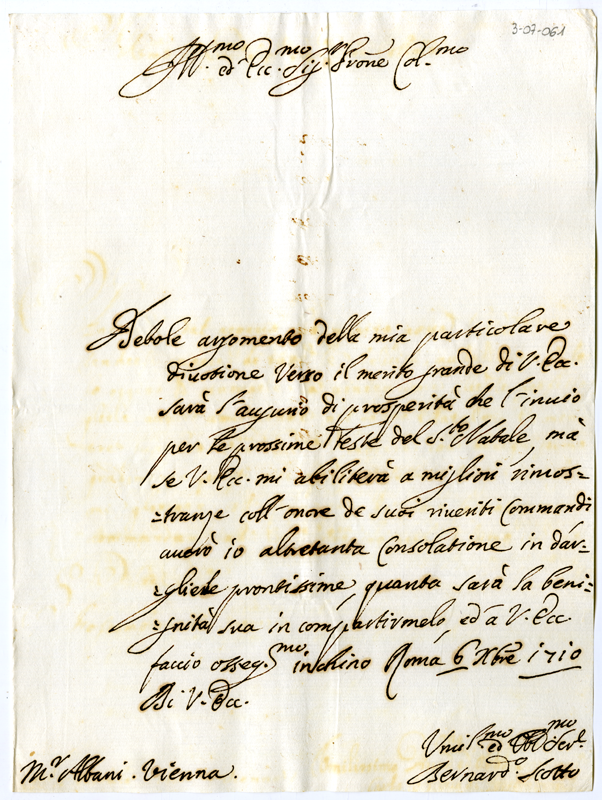 3-07-061
Ill.mo ed Ecc. Sig. Prone Col.mo
Debole argomento della mia particolare
divotione verso il merito grande di V. Ecc.
sarà l'augurio di prosperità che l'invio
per le prossime feste del S.to Natale, mà
se V. Ecc. mi abiliterà a migliori rimos-
-tranze coll'onore de suoi riveriti Commandi
averò io altretanta Consolatione in dar-
-gliele prontissime, quanta sarà la beni-
-gnità sua in compartirmelo, ed à V. Ecc.
faccio osseq.mo inchino Roma 6 Xbre 1710
Di V. Ecc.
Umil.mo ed Obl.mo Ser.
M.r Albani. Vienna.
Bernard.o Scotto